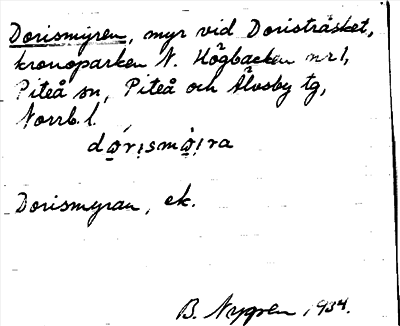 Dorismyren, myr vid Doristräsket,
kronoparken N. Högbacken nr 1,
Piteå sn, Piteå och Älvsby tg,
Norrb. l.
Dorismyran, ek.
B. Nygren 1934.